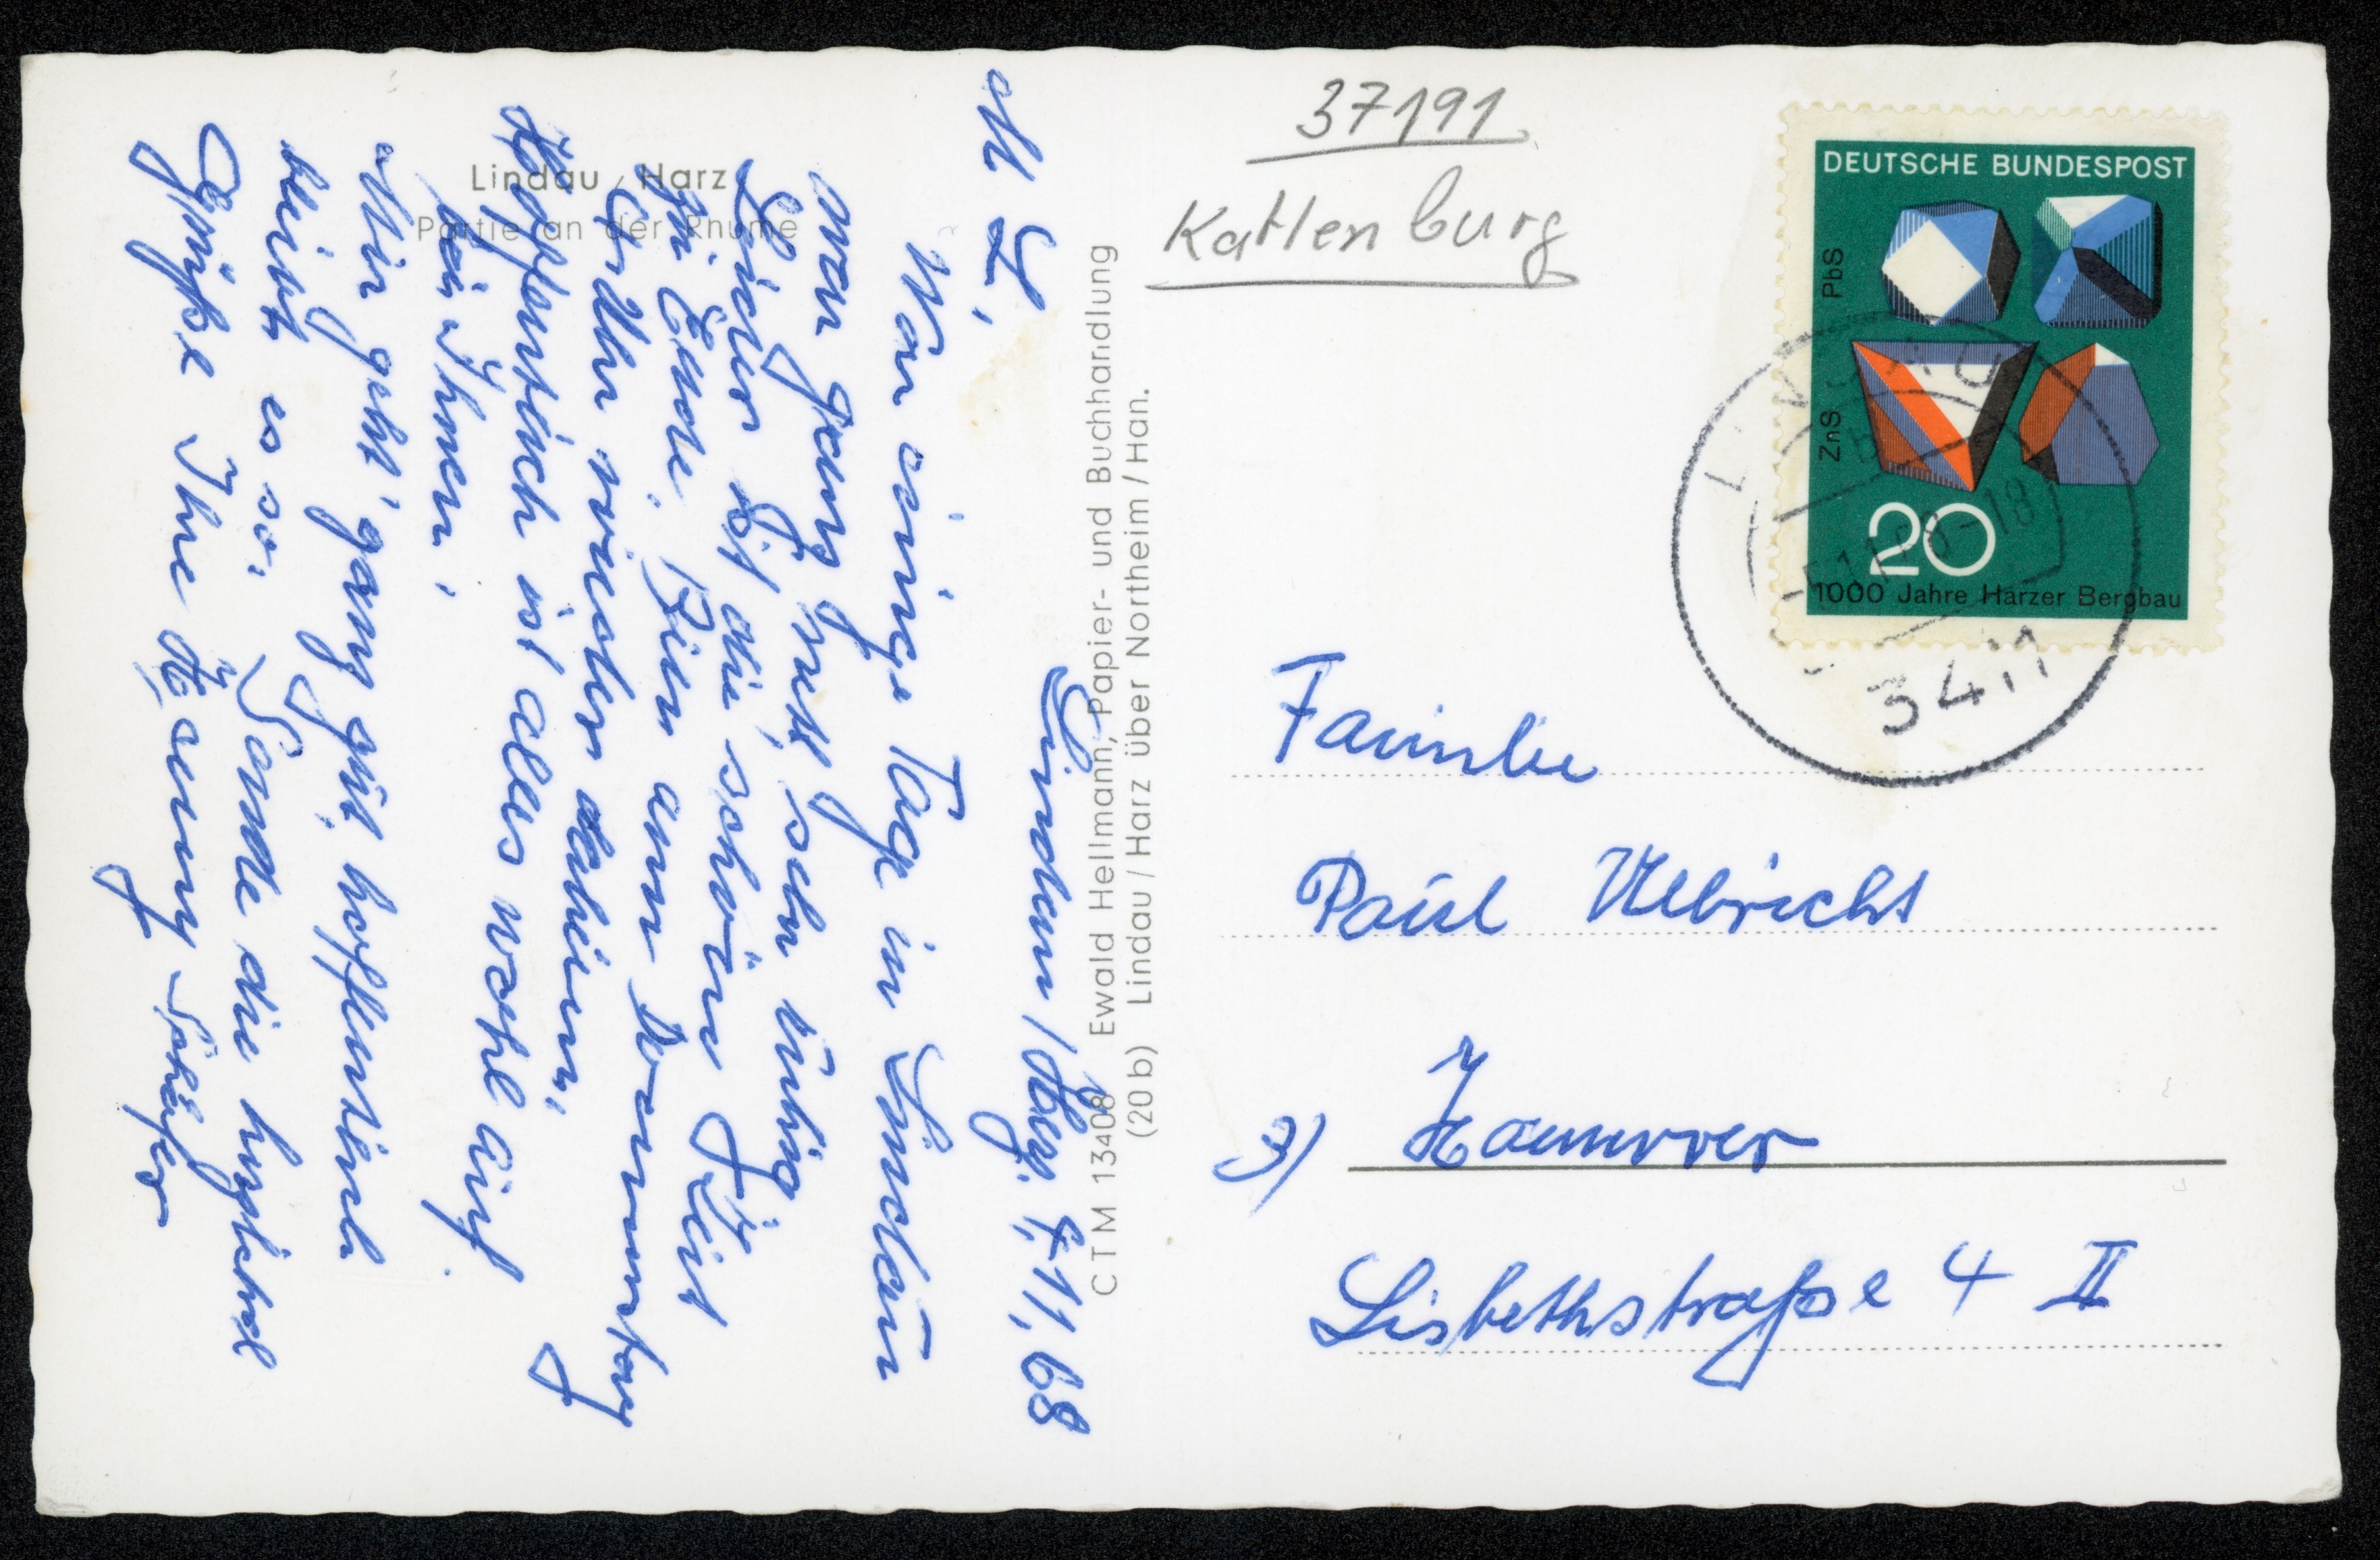 Lindau / Harz
Partie an der Rhume
Lindau / Harz, 4.11.68
M L,
Vor einige Tage in Lindau
war ganz nett, sehr ruhig
Leider ist die schöne Zeit
zu Ende. Bin am Donnerstag
Uhr wieder daheim,
Hoffentlich ist alles wohl auf
bei Ihnen,
Mir geht' ganz gut, hoffentlich
bleibt es so. Sende die herzlichsten
Grüße Ihre Hanny Schäfer
CTM 13408 Ewald Hellmann, Papier- und Buchhandlung
(20b) Lindau / Harz über Northeim / Han.
37191
Katlenburg
DEUTSCHE BUNDESPOST
PbS
ZnS
20
1000 Jahre Harzer Bergbau
LINDAU
b
3411
Familie
Paul Ulbricht
3) Hannover
Lisbethstraße 4 II